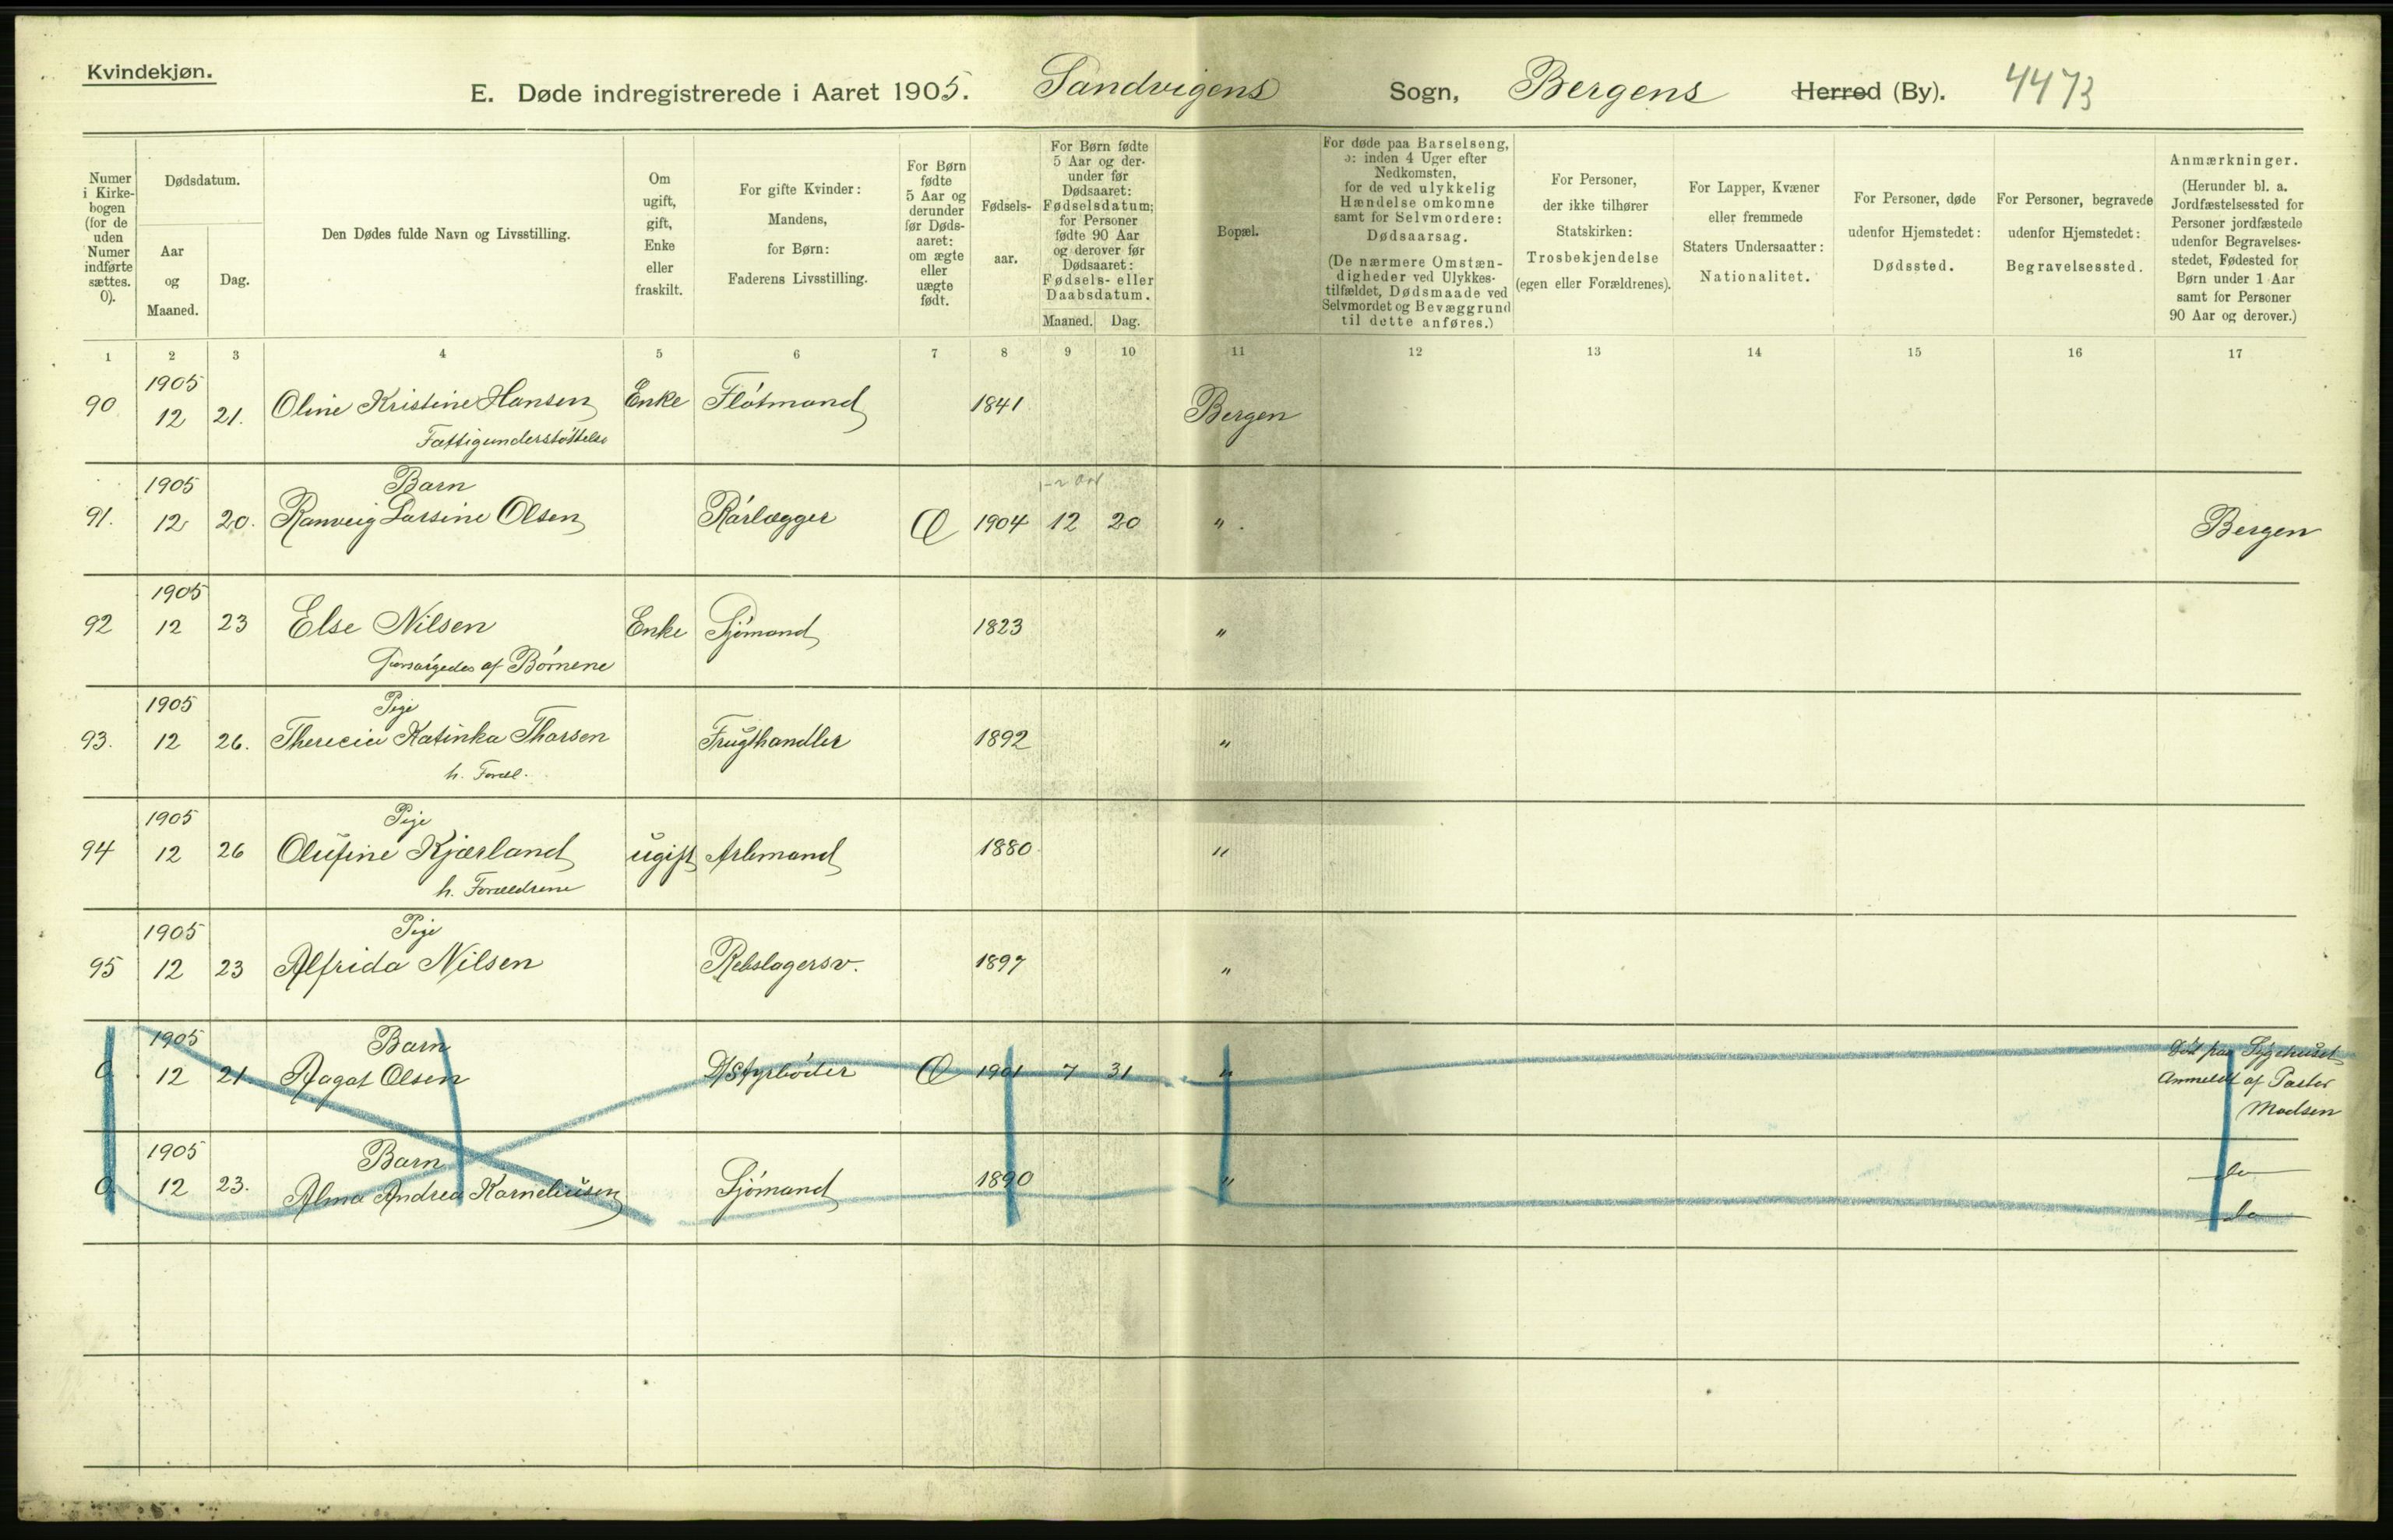 Kvindekjøn.
E. Døde indregistrerede i Aaret 1905. Sandvigens Sogn, Bergens Herred (By). 4473
Numer i Kirke-bogen (for de uden Numer indførte sættes. 0).
Dødsdatum.
Aar og Maaned.
Dag.
Den Dødes fulde Navn og Livsstilling.
Om ugift, gift, Enke eller fraskilt.
For gifte Kvinder: Mandens, for Børn: Faderens Livsstilling.
For Børn fødte 5 Aar og derunder før Døds-aaret: om ægte eller uægte født.
Fødsels-aar.
For Børn fødte 5 Aar og der-under før Dødsaaret: Fødselsdatum; for Personer fødte 90 Aar og derover før Dødsaaret: Fødsels- eller Daabsdatum.
Maaned. Dag.
Bopæl.
For døde paa Barselseng, ɔ: inden 4 Uger efter Nedkomsten, for de ved ulykkelig Hændelse omkomne samt for Selvmordere: Dødsaarsag. (De nærmere Omstæn-digheder ved Ulykkes-tilfældet, Dødsmaade ved Selvmordet og Bevæggrund til dette anføres.)
For Personer, der ikke tilhører Statskirken: Trosbekjendelse (egen eller Forældrenes).
For Lapper, Kvæner eller fremmede Staters Undersaatter: Nationalitet.
For Personer, døde udenfor Hjemstedet: Dødssted.
For Personer, begravede udenfor Hjemstedet: Begravelsessted.
Anmærkninger. (Herunder bl. a. Jordfæstelsessted for Personer jordfæstede udenfor Begravelses-stedet, Fødested for Børn under 1 Aar samt for Personer 90 Aar og derover.)
1 2 3 4 5 6 7 8 9 10 11 12 13 14 15 16 17
1905
90 12 21. Oline Kristine Hansen Enke Flótmand 1841 Bergen
Fattigunderstóttelse
1905 Barn
91. 12 20. Ranveig Larsine Olsen Rórlægger Æ 1904 12 20 " Bergen
1905
92 12 23 Else Nilsen Enke Sjómand 1823 "
Forsórgedes af Bórnene
1905 Pige
93. 12 26. Therecia Katinka Thorsen Frugthandler 1892 "
h. Foræl.
1905 Pige
94 12 26 Olufine Kjærland ugift Arbmand 1880 "
h. Forældrene
1905 Pige
95 12 23 Alfrida Nilsen Rebslagersv. 1897 "
1905 Barn
0. 12 21. Aagot Olsen D/S fyrbóder Æ 1901 7 31 " Dód paa Sygehuset
Anmeldt af Pastor
Madsen
1905 Barn
0. 12 23. Alma Andrea Korneliusen Sjómand 1890 " do
do